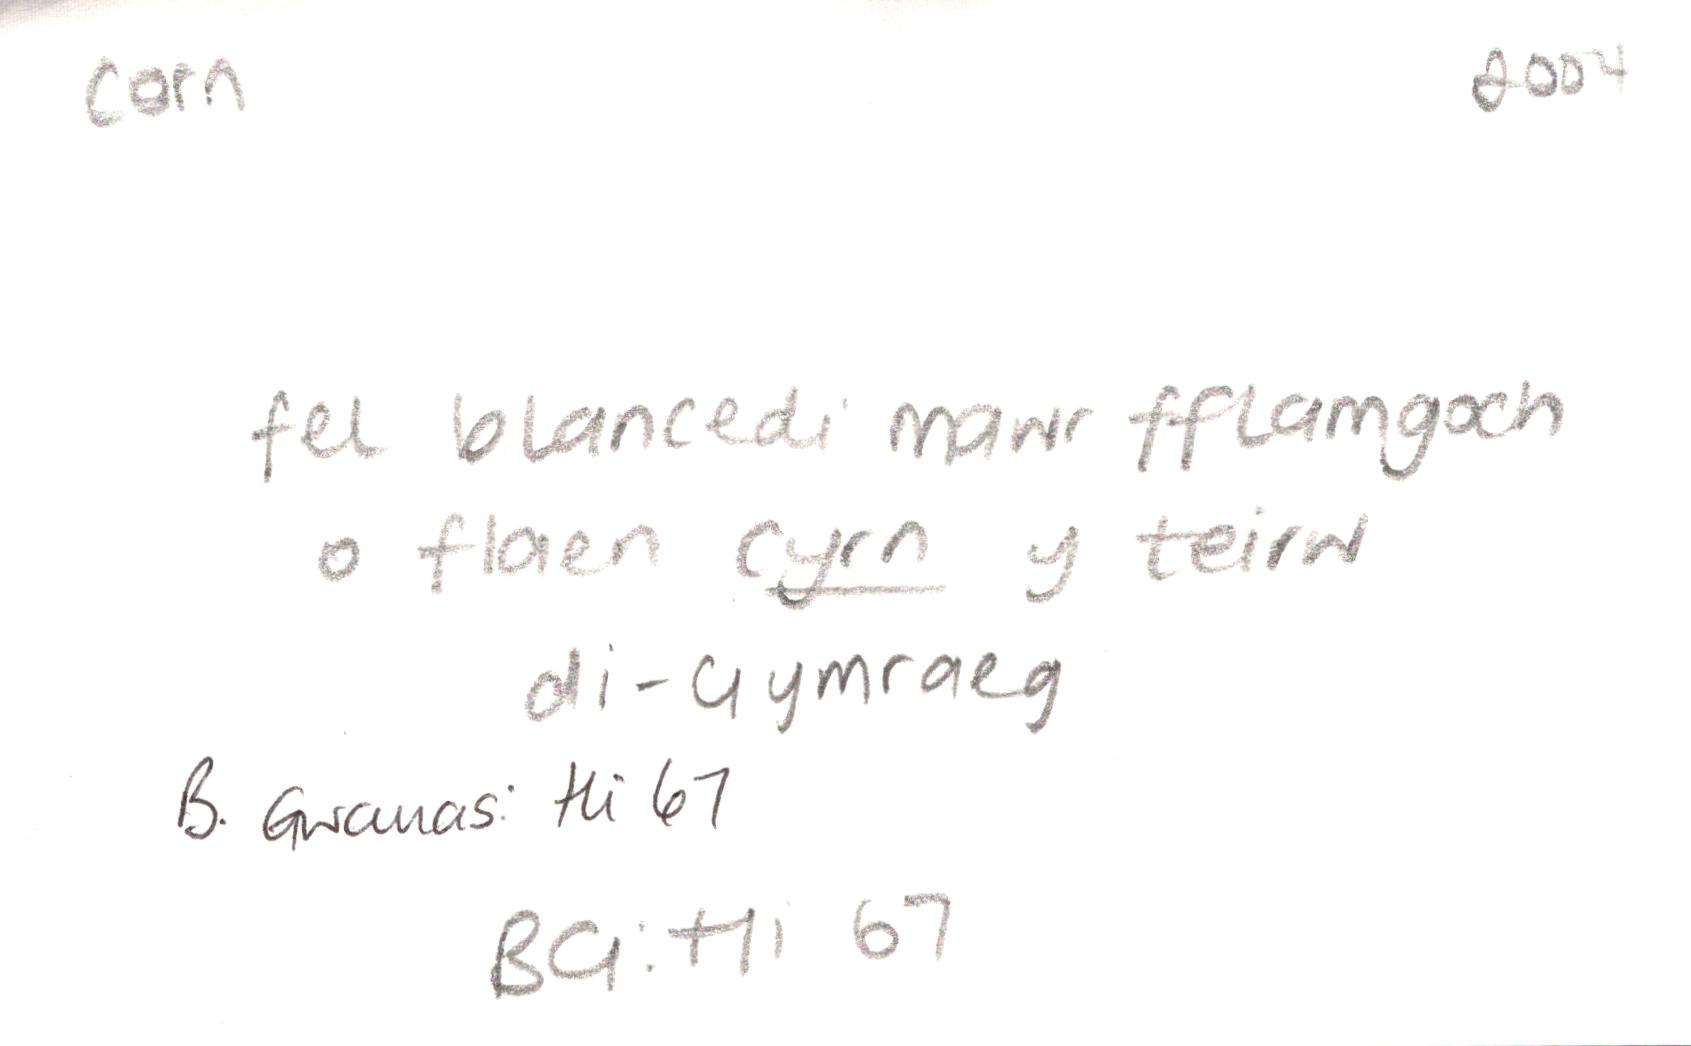 corn 2004
fel blancedi mawr fflamgoch
o flaen cyrn y teirw
di-Gymraeg
B. Gwanas: Hi 67
BG: Hi 67